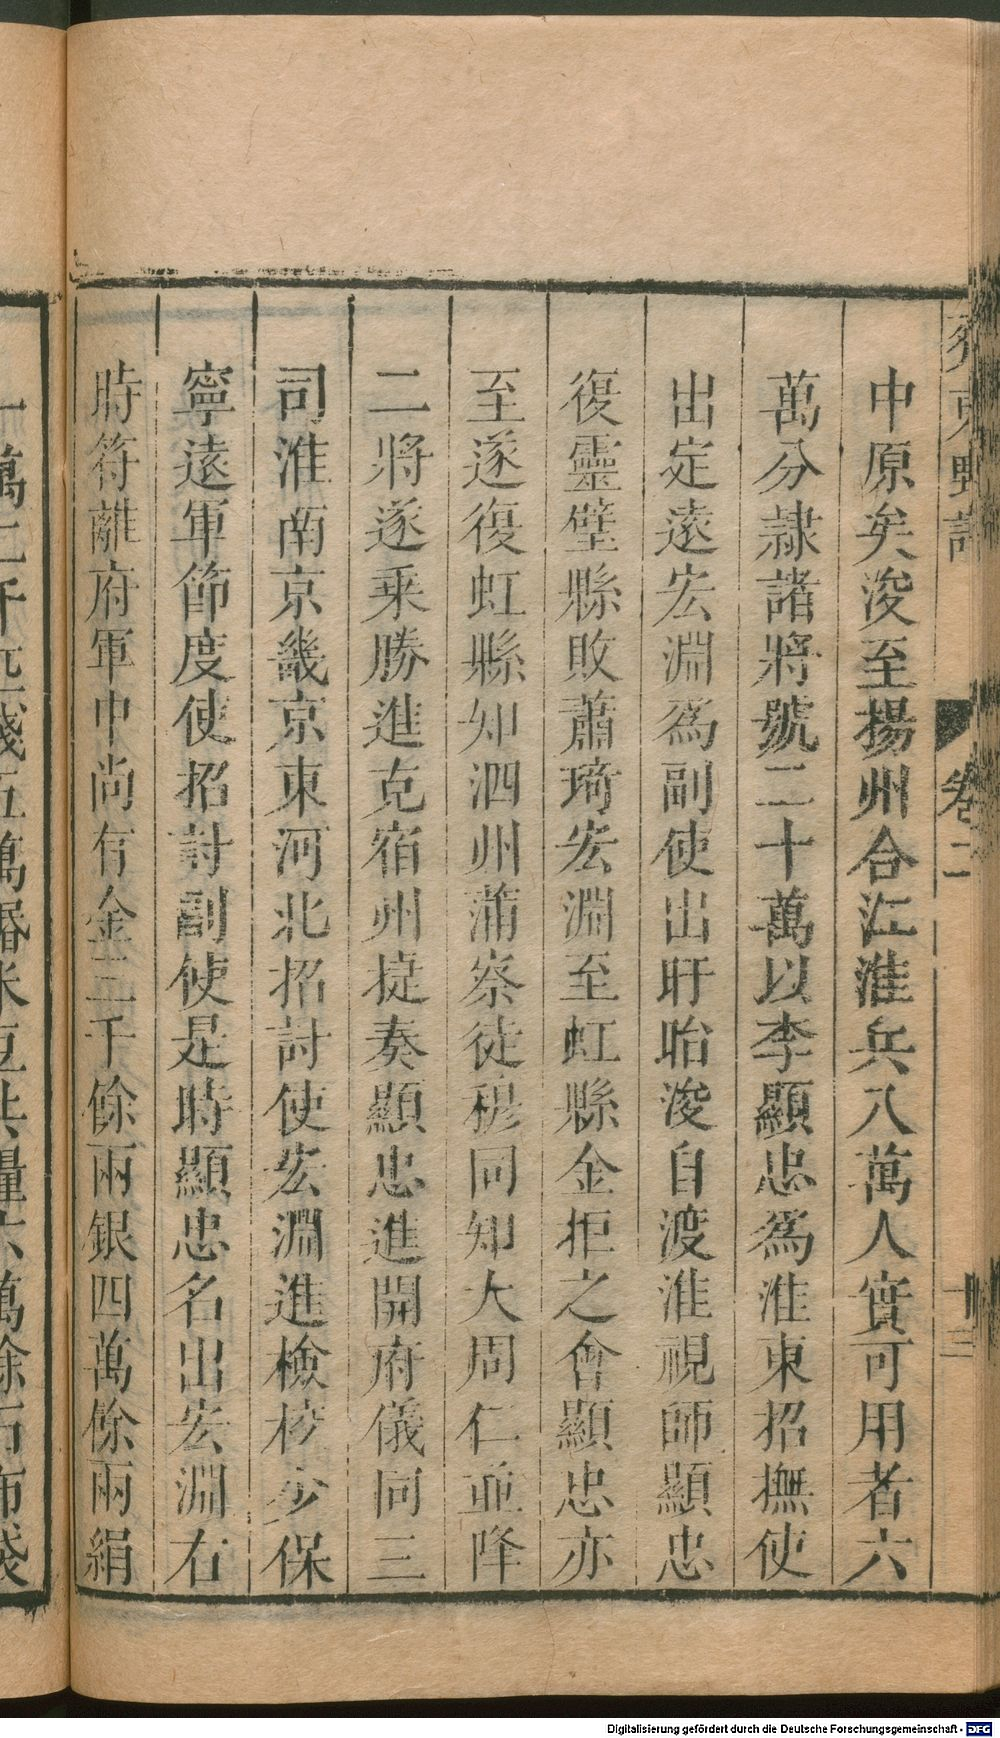 中原矣浚至揚州合江淮兵八萬人實可用者六
萬分隷諸將號二十萬以李顯忠爲淮東招撫使
出定遠宏淵爲副使出盱眙浚自渡淮視師顯忠
復靈璧縣敗蕭琦宏淵至虹縣金拒之會顯忠亦
至遂復虹縣知泗州蒲察徒穆同知大周仁並降
二將遂乗勝進克宿州捷奏顯忠進開府儀同三
司淮南京畿京東河北招討使宏淵進檢校少保
寧遠軍節度使招討副使是時顯忠名出宏淵右
時符離府軍中尚有金三千餘兩銀四萬餘兩絹
東野語
卷二
十三
Digitalisierung gefördert durch die Deutsche Forschungsgemeinschaft - DFG